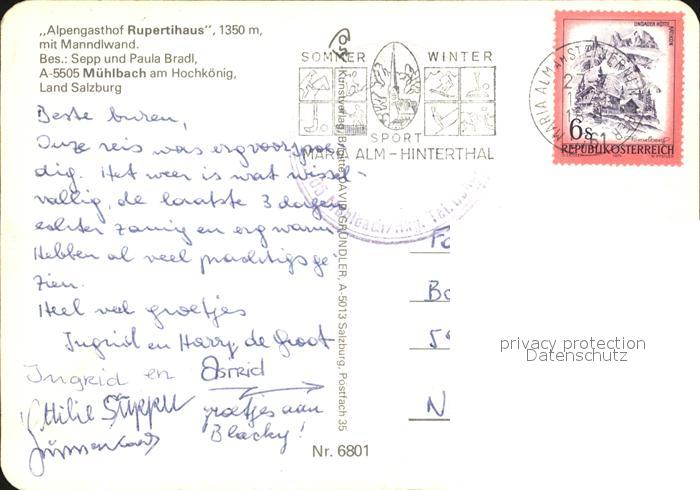 „Alpengasthof Rupertihaus", 1350 m,
mit Manndlwand.
Bes.: Sepp und Paula Bradl,
A-5505 Mühlbach am Hochkönig,
Land Salzburg
Beste buren,
Onze reis was ergvoorspoe-
dig. Het weer is wat wissel-
vallig, de laatste 3 dagen
echter zonnig en erg warm
Hebben al veel prachtigs ge-
zien.
Heel veel groetjes
Ingrid en Harry de Groot
Ingrid en ASTRID
groetjes aan
Blacky!
Nr. 6801
Kunstverlag Brigitte DAVID-GRÜNDLER, A-5013 Salzburg, Postfach 35
SOMMER WINTER
SPORT
MARIA ALM-HINTERTHAL
MARIA ALM
6 S
REPUBLIK ÖSTERREICH
LINDAUER HÜTTE
Fa
Bo
N
privacy protection
Datenschutz